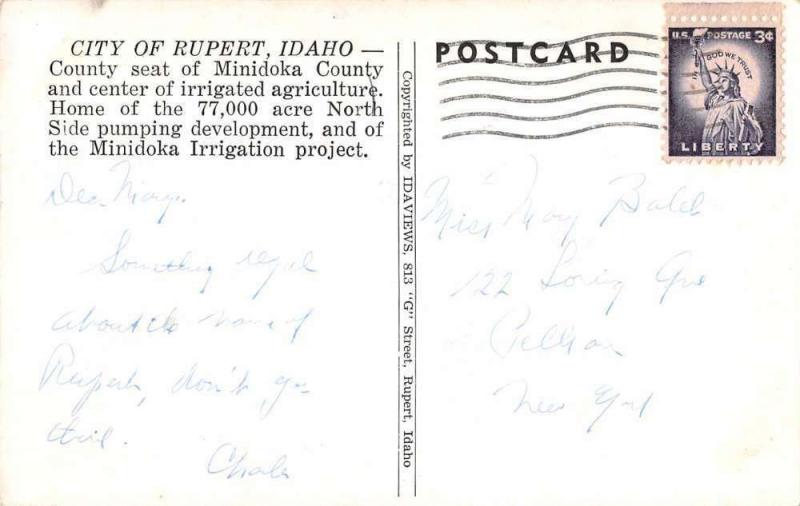 CITY OF RUPERT, IDAHO —
County seat of Minidoka County
and center of irrigated agriculture.
Home of the 77,000 acre North
Side pumping development, and of
the Minidoka Irrigation project.
Dear Mary.
Something regal
about the name of
Rupert, don't you
think.
POSTCARD
U.S. POSTAGE 3¢
IN GOD WE TRUST
LIBERTY
Copyrighted by IDAVIEWS, 813 "G" Street, Rupert, Idaho
Miss Mary
122 Loring Ave
Pelham
New York